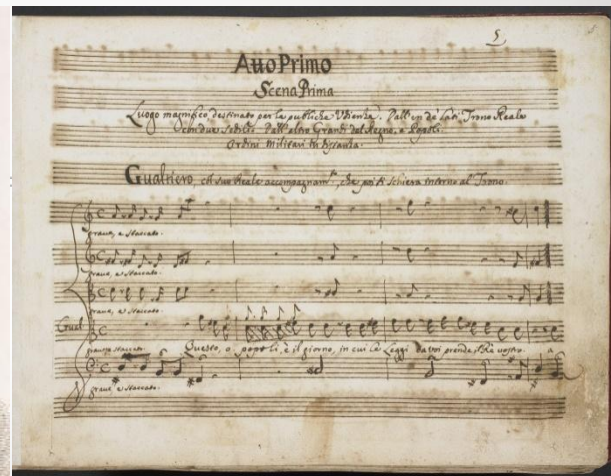 5
Atto Primo
Scena Prima
Luogo magnifico, destinato per le publiche Udienze. Dall'un de' Lati Trono Reale
con due Sedili. Dall'altro Grandi del Regno, e Popoli.
Ordini Militari in distanza.
Gualtiero, col suo Reale accompagnam.to, che poi si schiera intorno al Trono.
grave, e staccato.
grave, e staccato.
grave, e staccato.
Gual
Questo, o popoli, è il giorno, in cui le Leggi da voi prende il Rè vostro. a
grave, e staccato.
grave, e staccato.